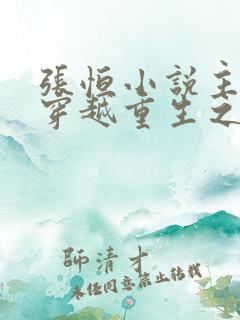 張恒小說主
穿越重生之
師清才
未經同意禁止轉載